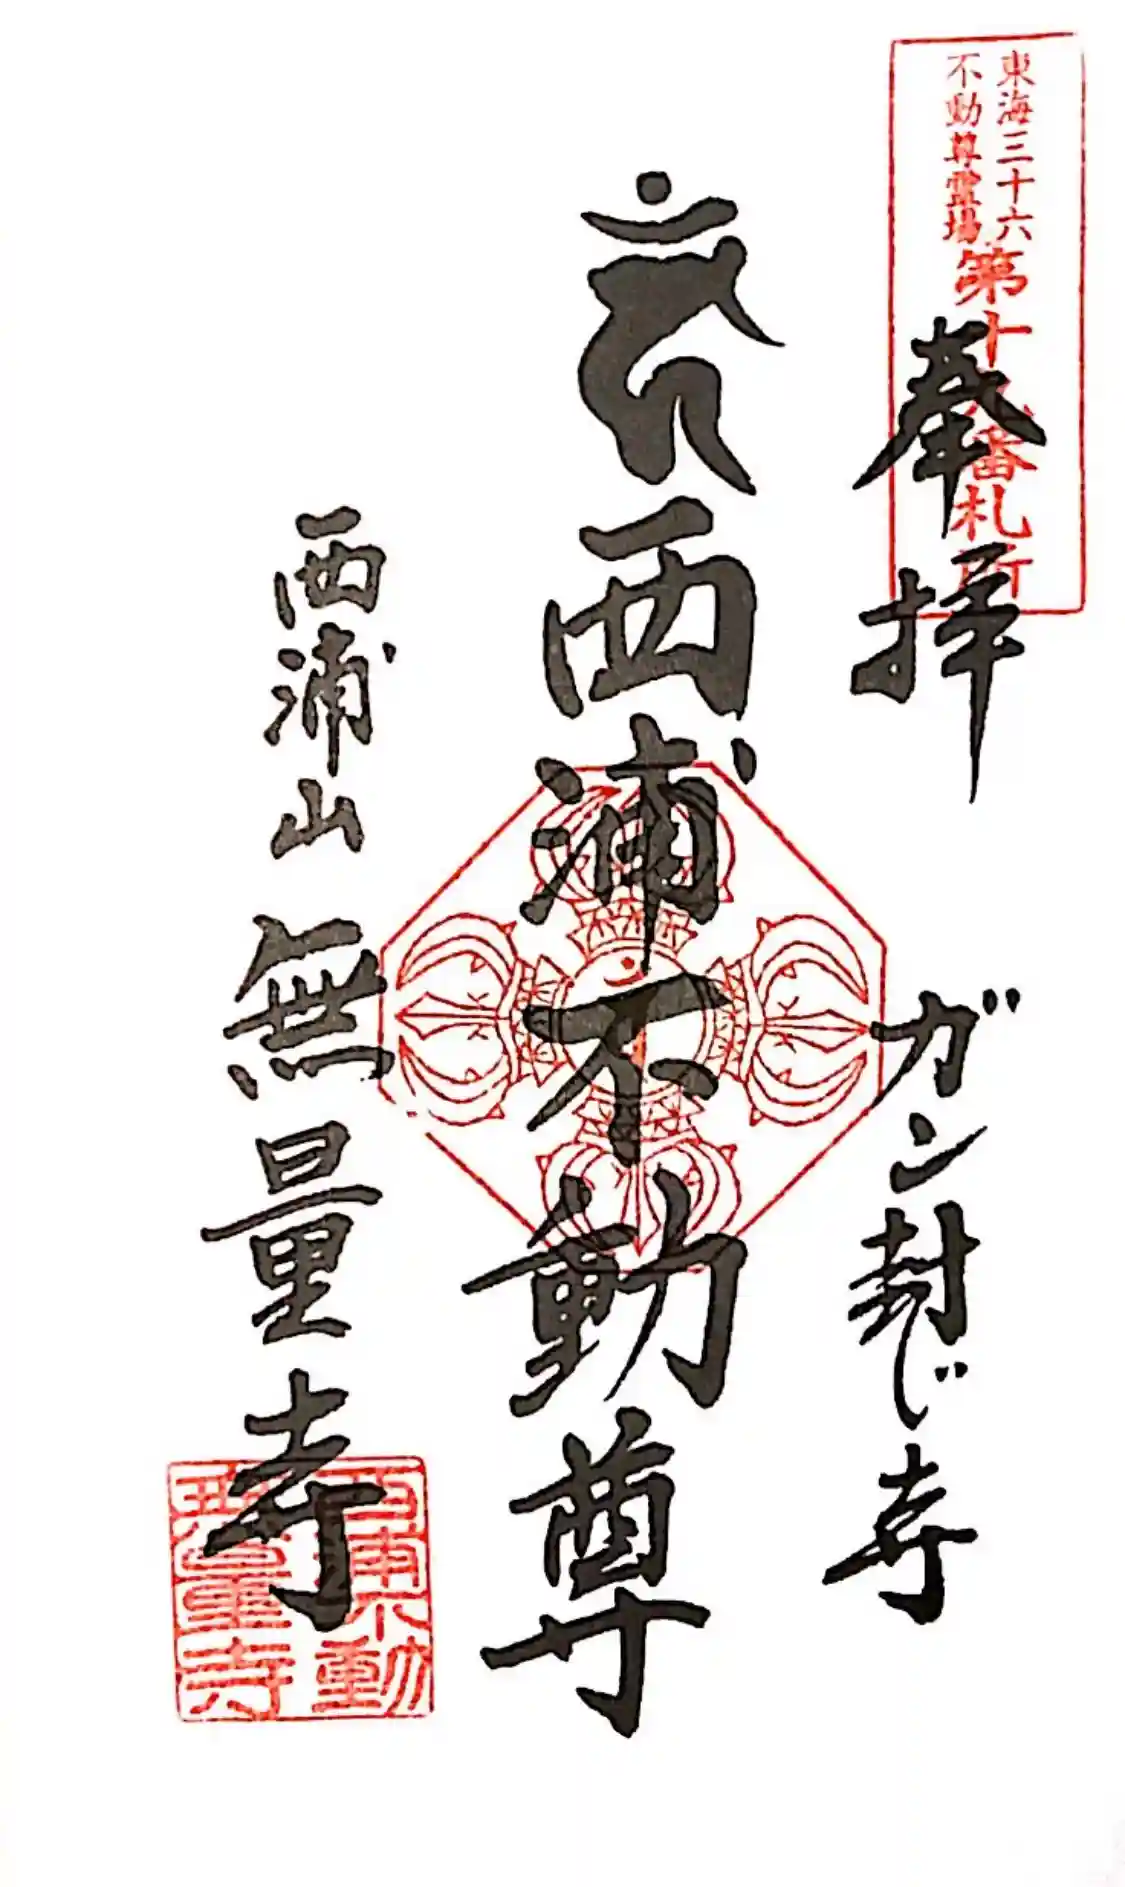 東海三十六
不動尊霊場
第十九番札所
奉拝
ガン封じ寺
西浦不動尊
西浦山 無量寺
西浦不動
無量寺